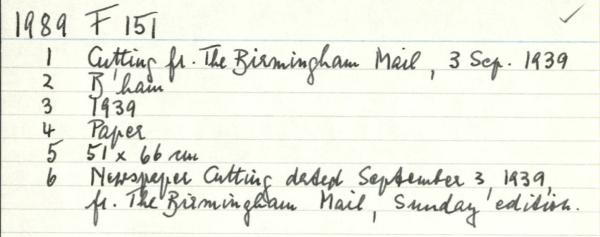 1989 F 151
1 Cutting fr. The Birmingham Mail, 3 Sep. 1939
2 B'ham
3 1939
4 Paper
5 51 x 66 cm
6 Newspaper Cutting dated September 3, 1939,
fr. The Birmingham Mail, Sunday edition.